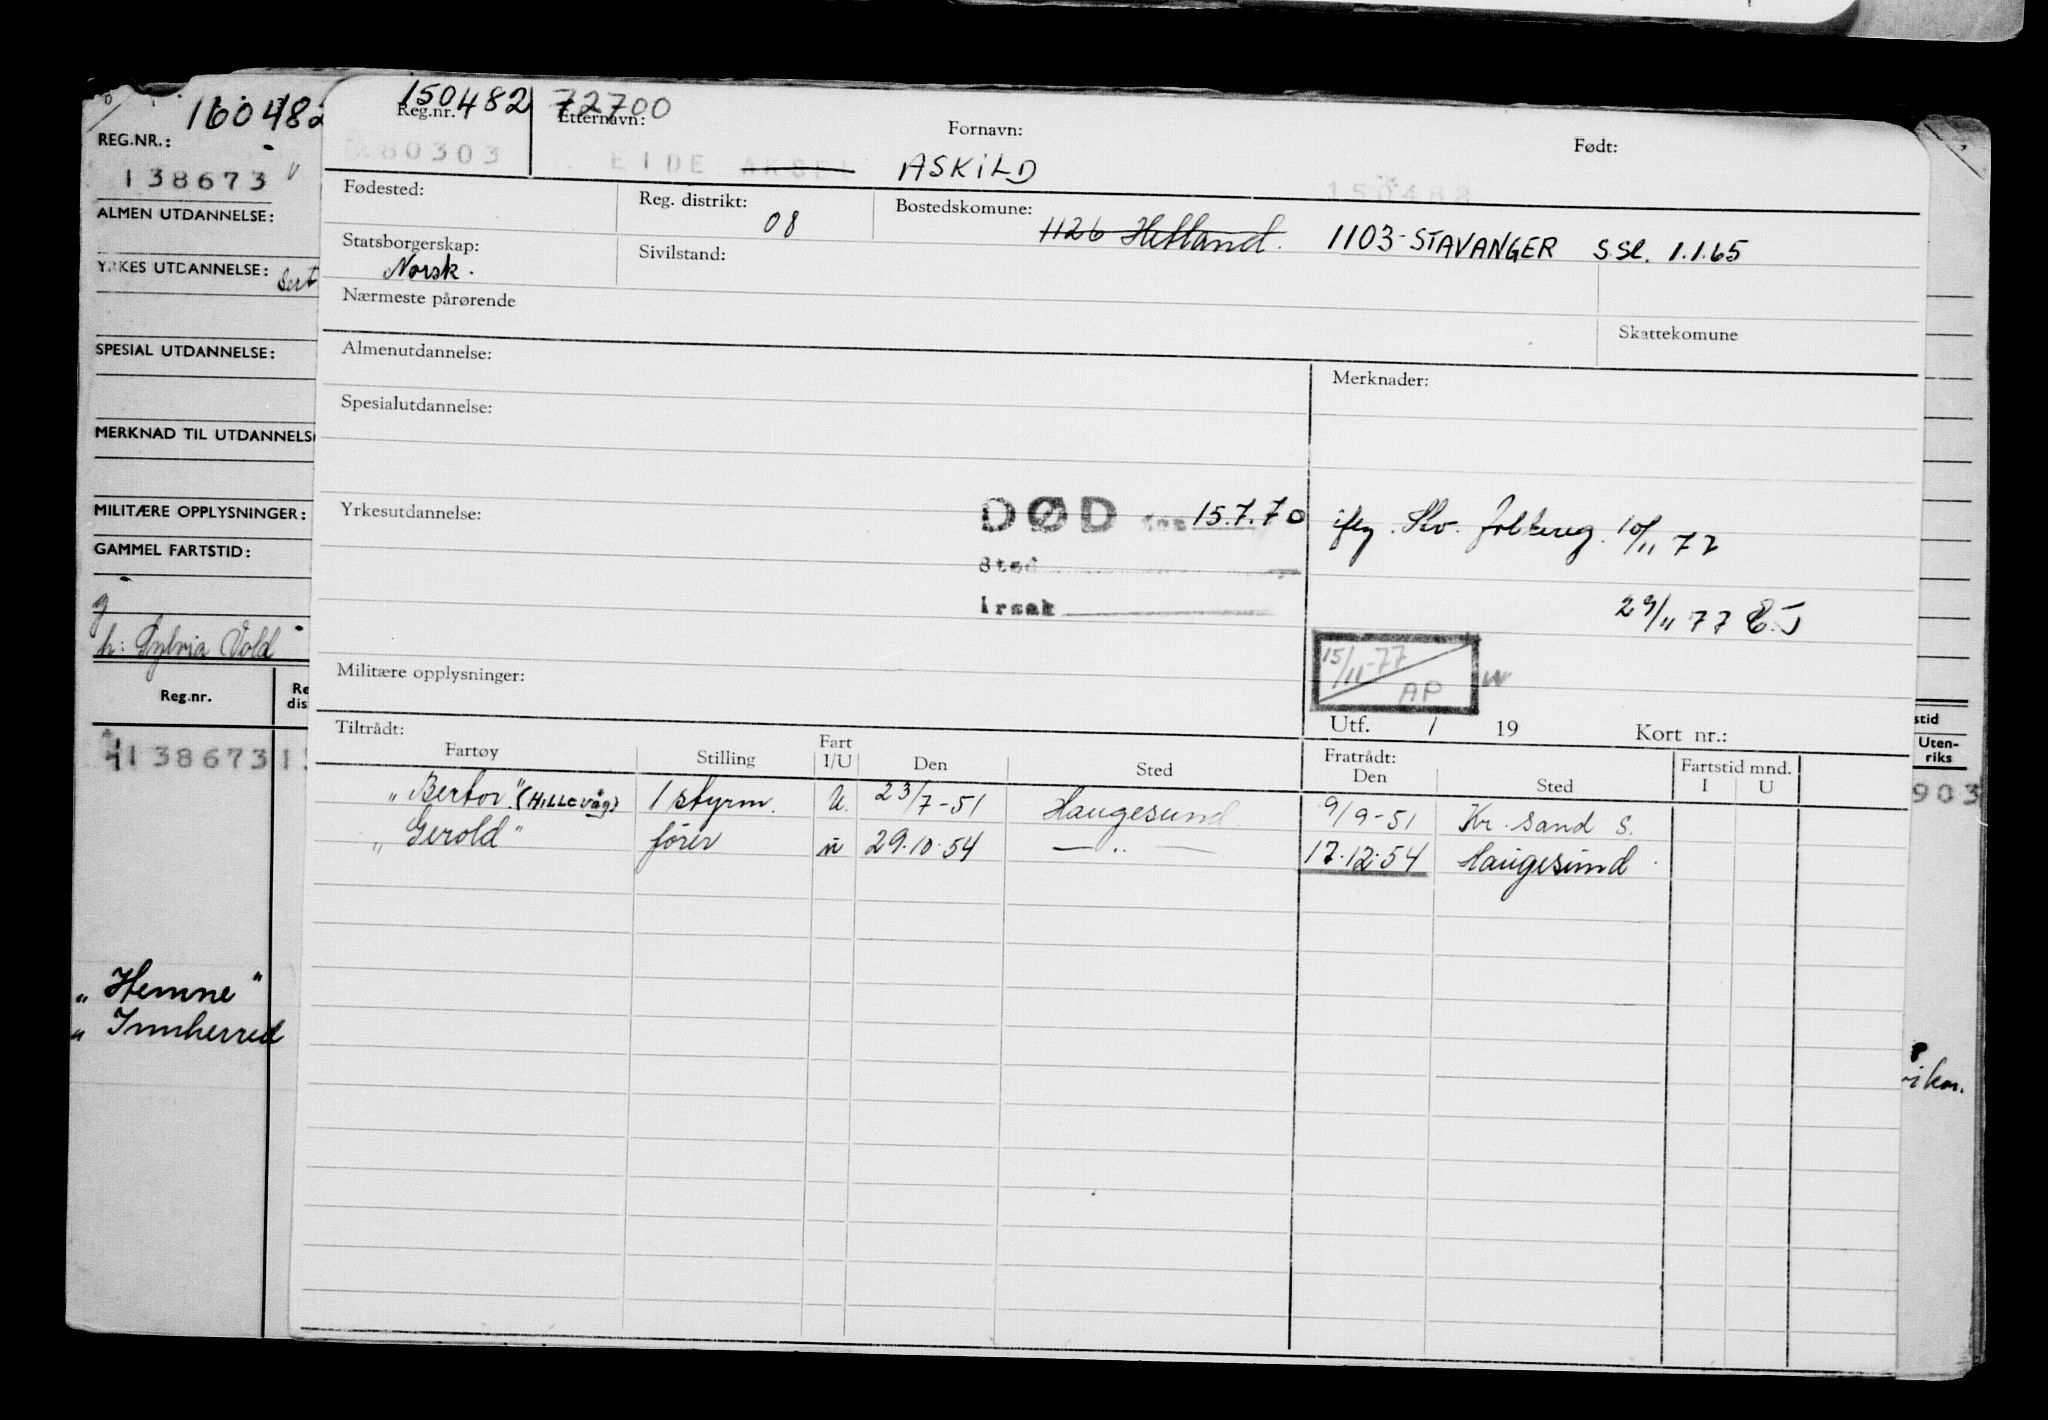 160482
REG.NR.:
138673
ALMEN UTDANNELSE:
YRKES UTDANNELSE:
SPESIAL UTDANNELSE:
MERKNAD TIL UTDANNELS
MILITÆRE OPPLYSNINGER:
GAMMEL FARTSTID:
h: Sylvia Vold
Reg.nr.
138673
"Hemne"
" Innherred
150482 72700
Reg.nr. Etternavn: Fornavn: Født:
80303 EIDE AKSEL ASKILD 150482
Fødested: Reg. distrikt: 08 Bostedskomune: 1126 Hetland. 1103-STAVANGER S.Sl. 1.1.65
Statsborgerskap: Norsk. Sivilstand:
Nærmeste pårørende Skattekomune
Almenutdannelse: Merknader:
Spesialutdannelse:
Yrkesutdannelse: DØD 15.7.70 iflg. Stv. folkereg. 10/11 77
Sted
Årsak 29/11 77 E.J
15/11-77 AP
Militære opplysninger:
Utf. / 19 Kort nr.:
Tiltrådt: Fratrådt: Fartstid mnd.
Fartøy Stilling Fart I/U Den Sted Den Sted I U
"Bertor" (HILLEVÅG) 1 styrm. U. 23/7-51 Haugesund 9/9-51 Kr. sand S.
"Gerold" fører u 29.10.54 — " — 17.12.54 Haugesund.
stid
Uten-
riks
903